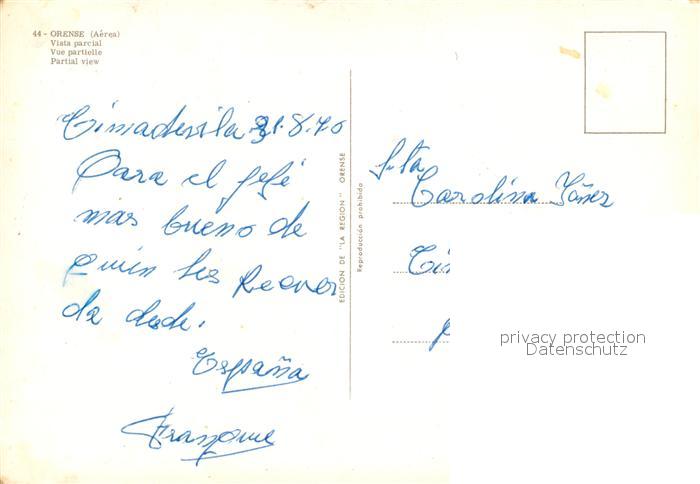 44 - ORENSE (Aérea)
Vista parcial
Vue partielle
Partial view
31.8.70
Para el gefe
mas bueno de
quien les recuer
da desde.
España
EDICION DE "LA REGION" ORENSE
Reproducción prohibido
Srta
Carolina Yáñez
privacy protection
Datenschutz